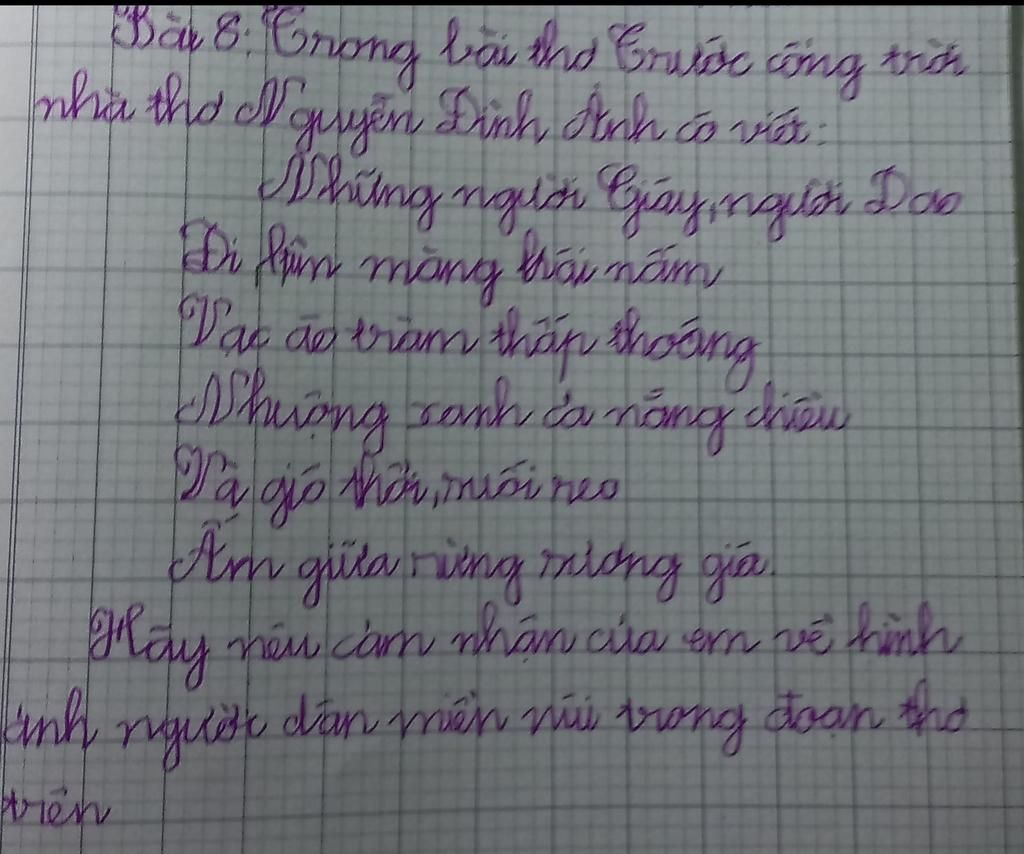 Bài 8: Trong bài thơ Trước cổng trời
nhà thơ Nguyễn Đình Ảnh có viết:
Những người Giáy, người Dao
Đi tìm măng hái nấm
Vạt áo chàm thấp thoáng
Nhuộng xanh cả nắng chiều
Và gió thổi, suối reo
Ấm giữa rừng sương giá.
Hãy nêu cảm nhận của em về hình
ảnh người dân miền núi trong đoạn thơ
trên